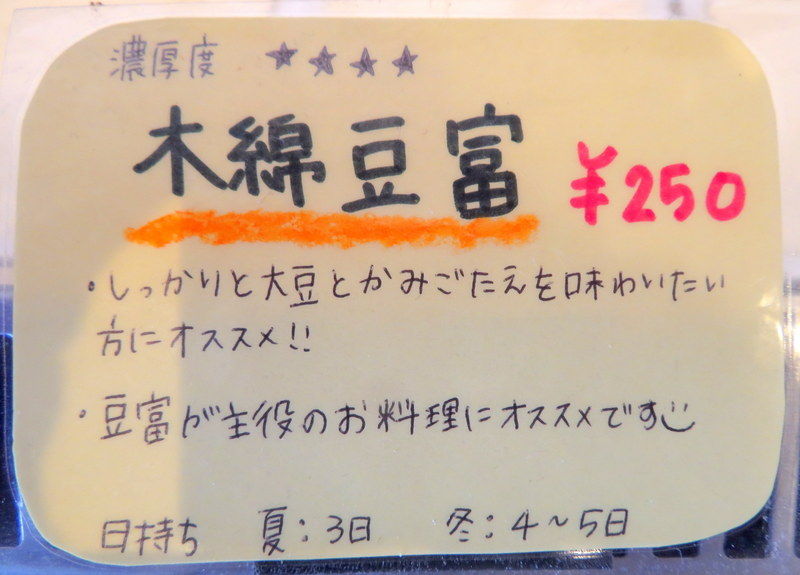 濃厚度 ★★★★
木綿豆富 ¥250
・しっかりと大豆とかみごたえを味わいたい
方にオススメ!!
・豆富が主役のお料理にオススメです
日持ち 夏:3日 冬:4~5日